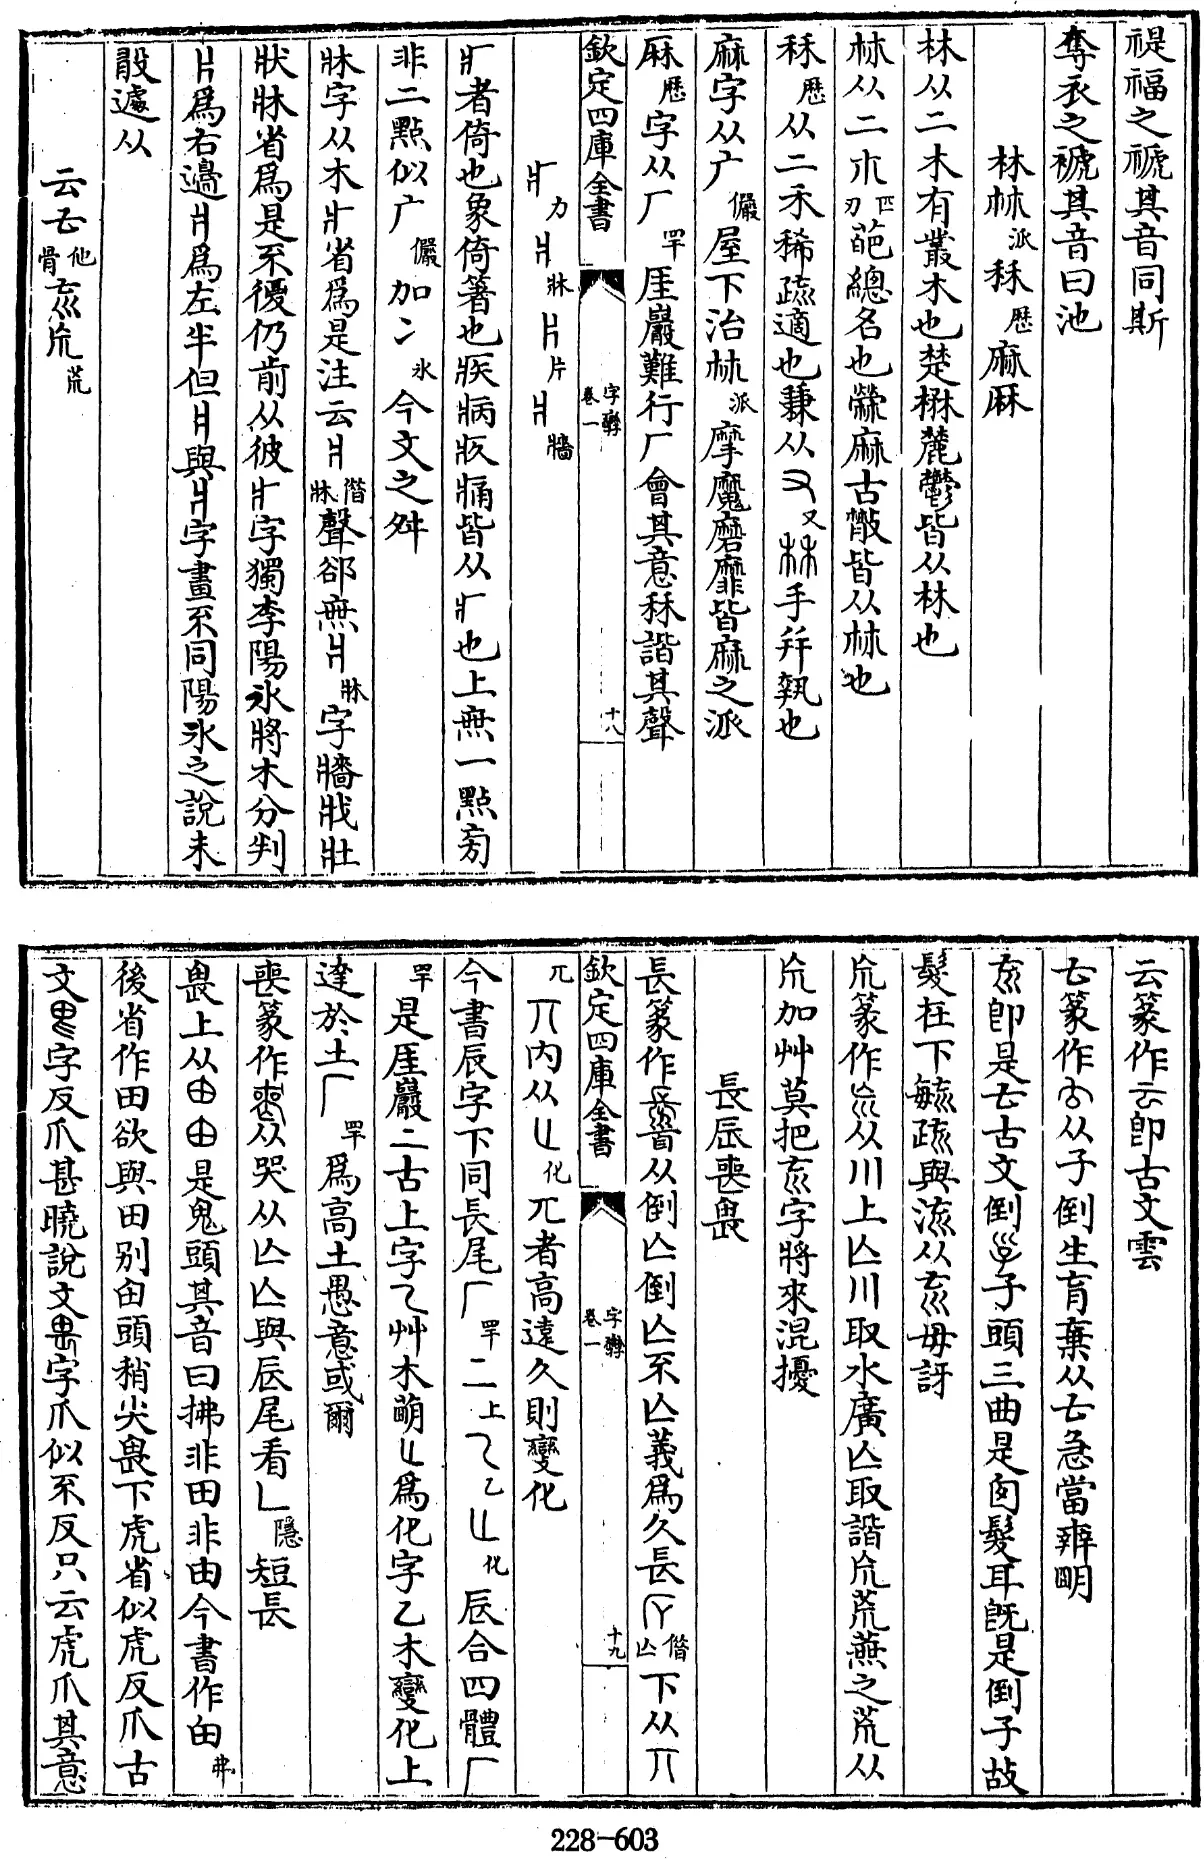 禔福之禠其音同斯
奪衣之褫其音曰池
林𣏟派秝歷麻厤
林从二木有叢木也楚楙麓鬱皆从林也
𣏟从二𣎳匹刃葩總名也𦃃麻古㪚皆从𣏟也
秝歷从二禾稀疏適也兼从又秝手幷執也
麻字从广儼屋下治𣏟派摩魔磨靡皆麻之派
厤歷字从厂罕厓巖難行厂會其意秝諧其聲
欽定四庫全書
字孿
卷一
十八
疒力爿牀片片爿牆
疒者倚也象倚箸也疾病疢痛皆从疒也上無一點旁
非二點似广儼加冫氷今文之舛
牀字从木爿省爲是注云爿牀諧聲郤無爿牀字牆戕壯
狀牀省爲是不復仍前从彼疒字獨李陽氷將木分判
片爲右邊爿爲左半但爿與爿字畫不同陽氷之說未
敢遽从
云𠫓他骨㐬巟荒
云篆作云卽古文雲
𠫓篆作𠫓从子倒生育棄从𠫓急當辨明
㐬卽是𠫓古文倒子頭三曲是囟髮耳旣是倒子故
髮在下毓疏與流从㐬毋訝
巟篆作巟从川上亾川取水廣亾取諧巟荒蕪之荒从
巟加艸莫把㐬字將來混擾
長辰喪畏
長篆作長从倒亾倒亾不亾義爲久長諧亾下从兀
欽定四庫全書
字孿
卷一
十九
兀丌内从匕化兀者高遠久則變化
今書辰字下同長尾厂罕二上乙乙匕化辰合四體厂
罕是厓巖二古上字乙艸木萌匕爲化字乙木變化上
達於土厂罕爲高土愚意或爾
喪篆作喪从哭从亾亾與辰尾看乚隱短長
畏上从甶甶是鬼頭其音曰拂非田非由今書作甶弗
後省作田欲與田别甶頭稍尖畏下虎省似虎反爪古
文畏字反爪甚曉說文畏字爪似不反只云虎爪其意
228-603